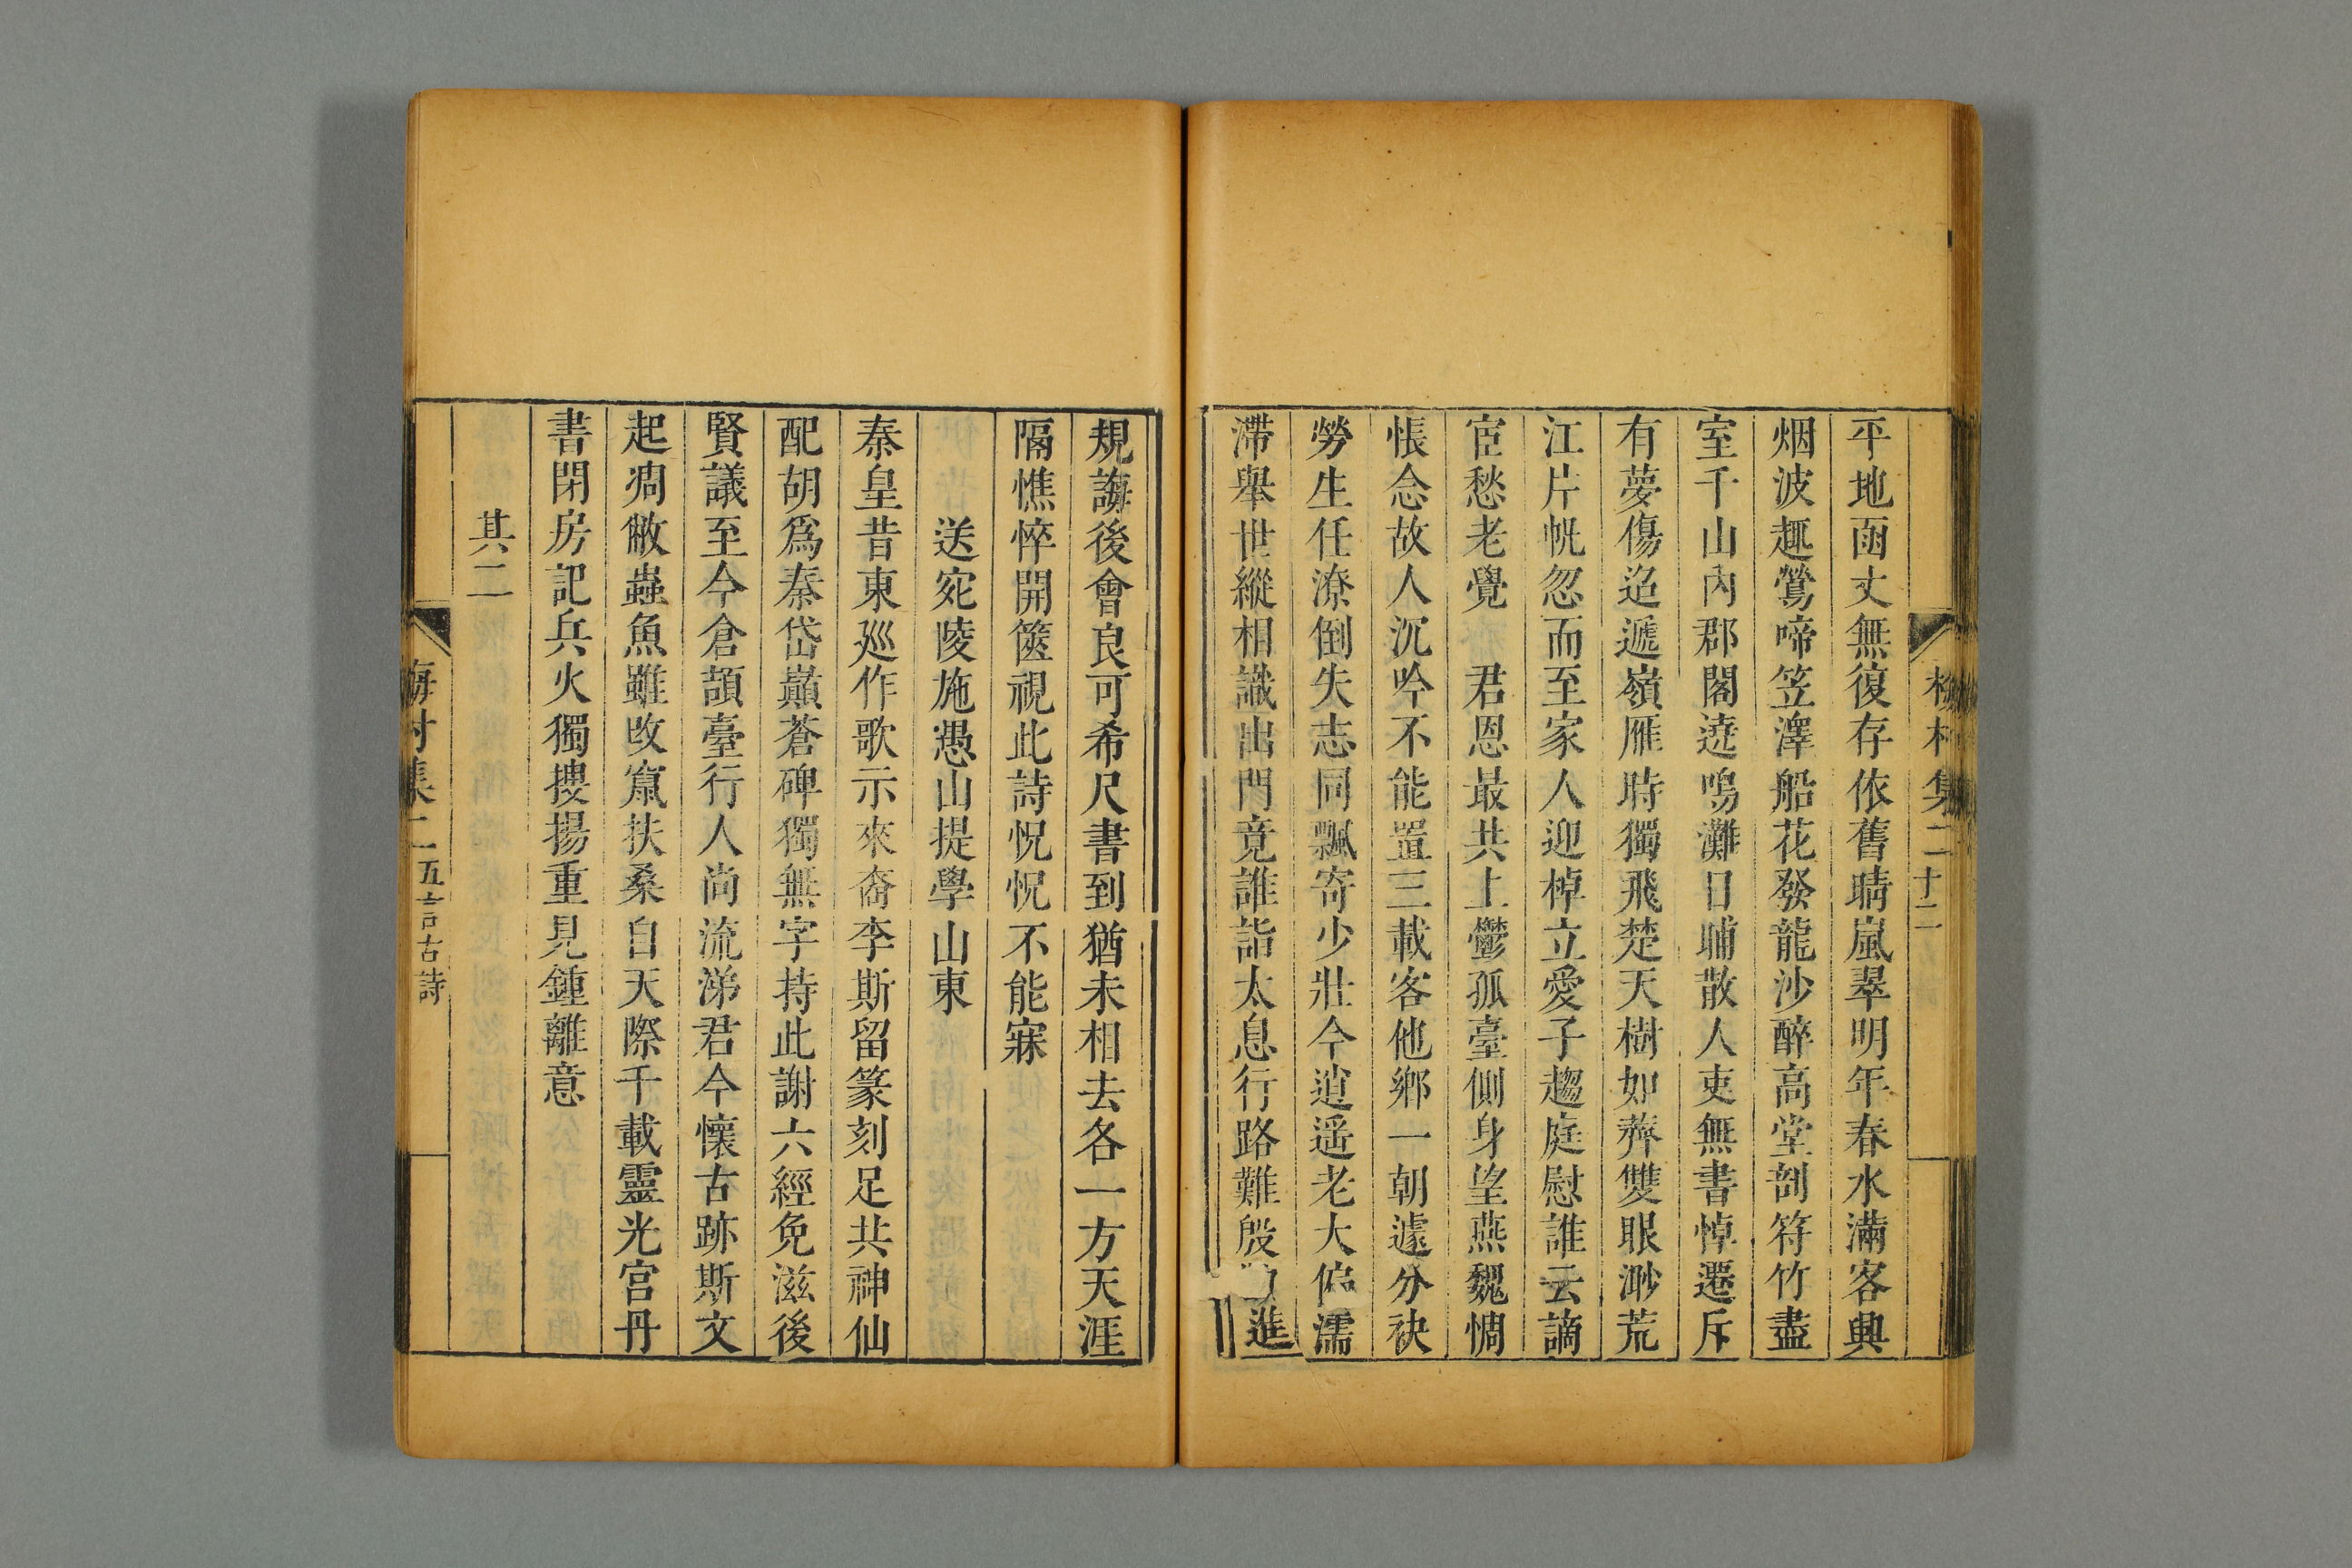 梅村集二十二
平地函丈無復存依舊晴嵐翠明年春水滿客興
烟波趣鶯啼笠澤船花發龍沙醉高堂剖符竹盡
室千山內郡閣遶鳴灘日晡散人吏無書悼遷斥
有夢傷迢遞嶺雁時獨飛楚天樹如薺雙眼渺荒
江片帆忽而至家人迎棹立愛子趨庭慰誰云謫
宦愁老覺 君恩最共上鬱孤臺側身望燕魏惆
悵念故人沉吟不能置三載客他鄉一朝遽分袂
勞生任潦倒失志同飄寄少壯今逍遥老大偏濡
滯舉世縱相識出門竟誰詣太息行路難殷 進
規誨後會良可希尺書到猶未相去各一方天涯
隔憔悴開篋視此詩怳怳不能寐
送宛陵施愚山提學山東
秦皇昔東廵作歌示來裔李斯留篆刻足共神仙
配胡爲秦岱巔蒼碑獨無字持此謝六經免滋後
賢議至今倉頡臺行人尚流涕君今懷古跡斯文
起凋敝蟲魚雖改竄扶桑自天際千載靈光宮丹
書閉房記兵火獨摟揚重見鍾離意
其二
梅村集二 五言古詩